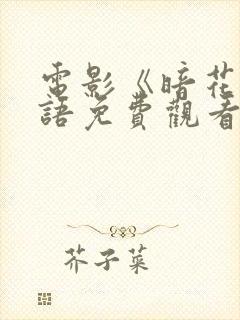 電影《暗花
語免費觀看
芥子菜